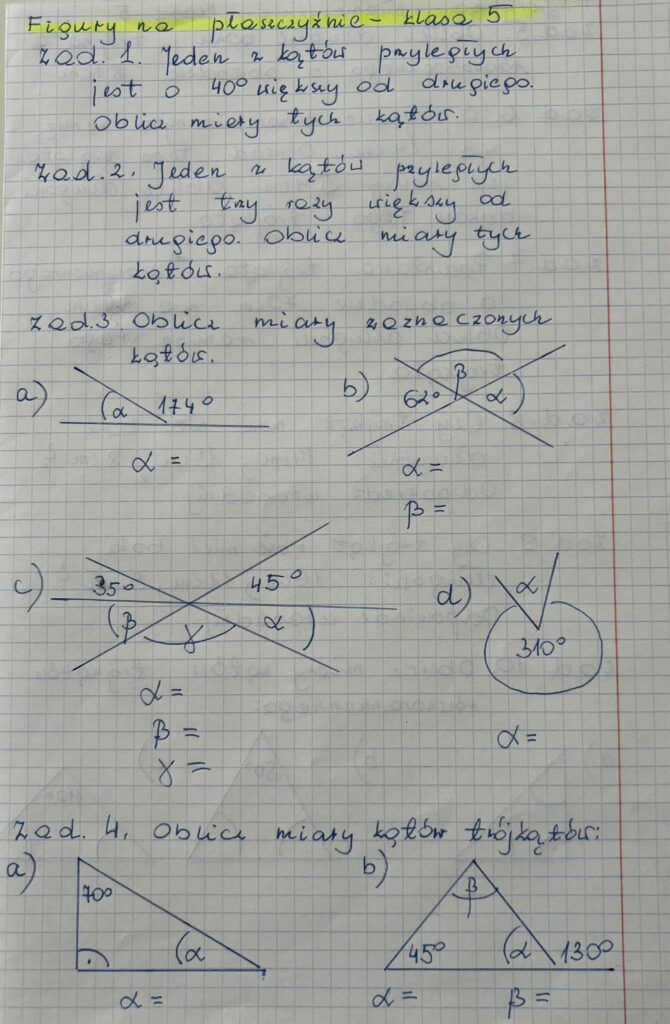 Figury na płaszczyźnie - klasa 5
Zad. 1. Jeden z kątów przyległych
jest o 40° większy od drugiego.
Oblicz miary tych kątów.
Zad. 2. Jeden z kątów przyległych
jest trzy razy większy od
drugiego. Oblicz miary tych
kątów.
Zad. 3. Oblicz miary zaznaczonych
kątów.
a) α 174°
α =
b) 62° β α
α =
β =
c) 35° 45°
β γ α
α =
β =
γ =
d) α
310°
α =
Zad. 4. Oblicz miary kątów trójkątów:
a) 70°
α
α =
b) β
45° α 130°
α = β =